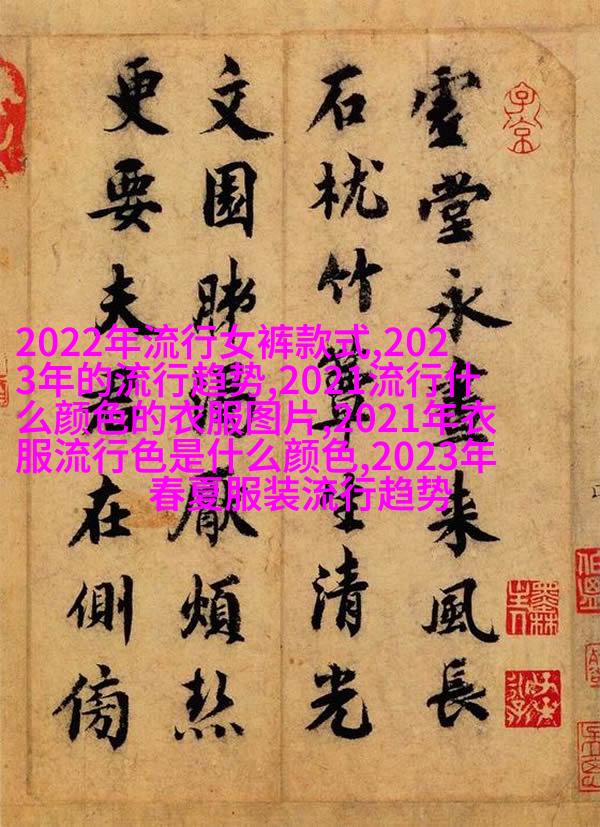 虛堂永晝來風長
石枕竹簟生清光
文園肺渴厭煩熱
更要夫君在側傍
2022年流行女裤款式,202
3年的流行趋势,2021流行什
么颜色的衣服图片,2021年衣
服流行色是什么颜色,2023年
春夏服装流行趋势